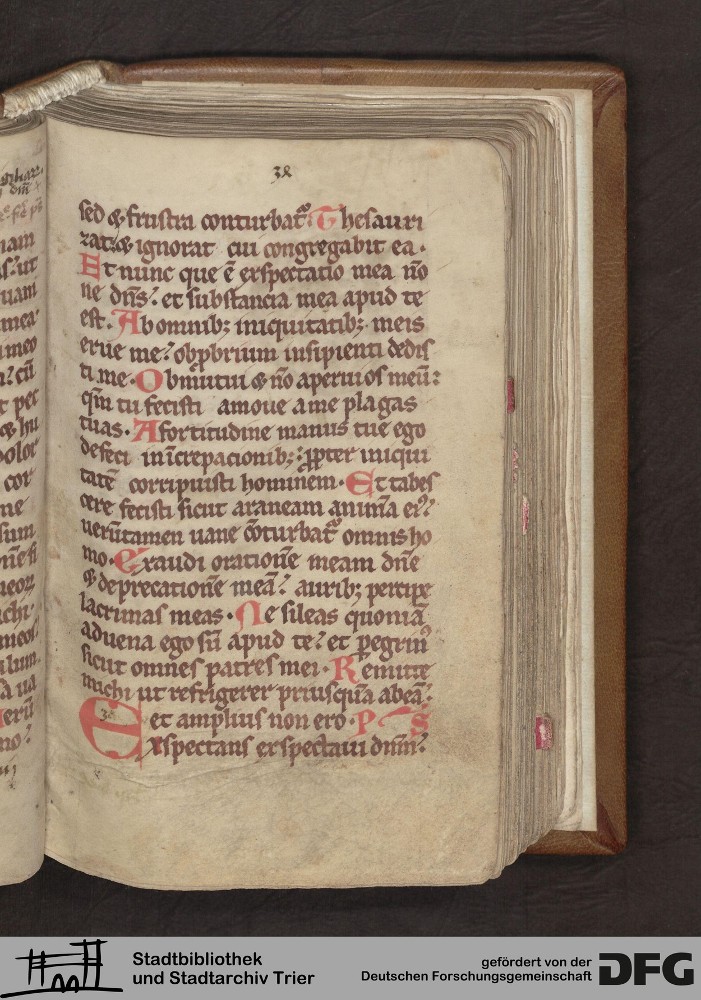 38
sed & frustra conturbat᷑. Thesauri
zat: & ignorat cui congregabit ea.
Et nunc que ē exspectatio mea nō
ne dn̄s? et substancia mea apud te
est. Ab omnib; iniquitatib; meis
erue me? obꝓbrium insipienti dedis
ti me. Obmutui & nō aperui os meū:
qm̄ tu fecisti amoue a me plagas
tuas. A fortitudine manus tue ego
defeci in īcrepacionib;: ꝓpter iniqui
tatē corripuisti hominem. Et tabes
cere fecisti sicut araneam animā eiꝰ?
uerūtamen uane cōturbat᷑ omnis ho
mo. Exaudi orationē meam dn̄e
& deprecationē meā? aurib; percipe
lacrimas meas. Ne sileas quoniā
aduena ego sū apud te? et ꝑegrinꝰ
sicut omnes patres mei. Remitte
michi ut refrigerer priusquā abeā?
et amplius non ero. PS
Exspectans exspectaui dnm̄?
Stadtbibliothek
und Stadtarchiv Trier
gefördert von der
Deutschen Forschungsgemeinschaft
DFG